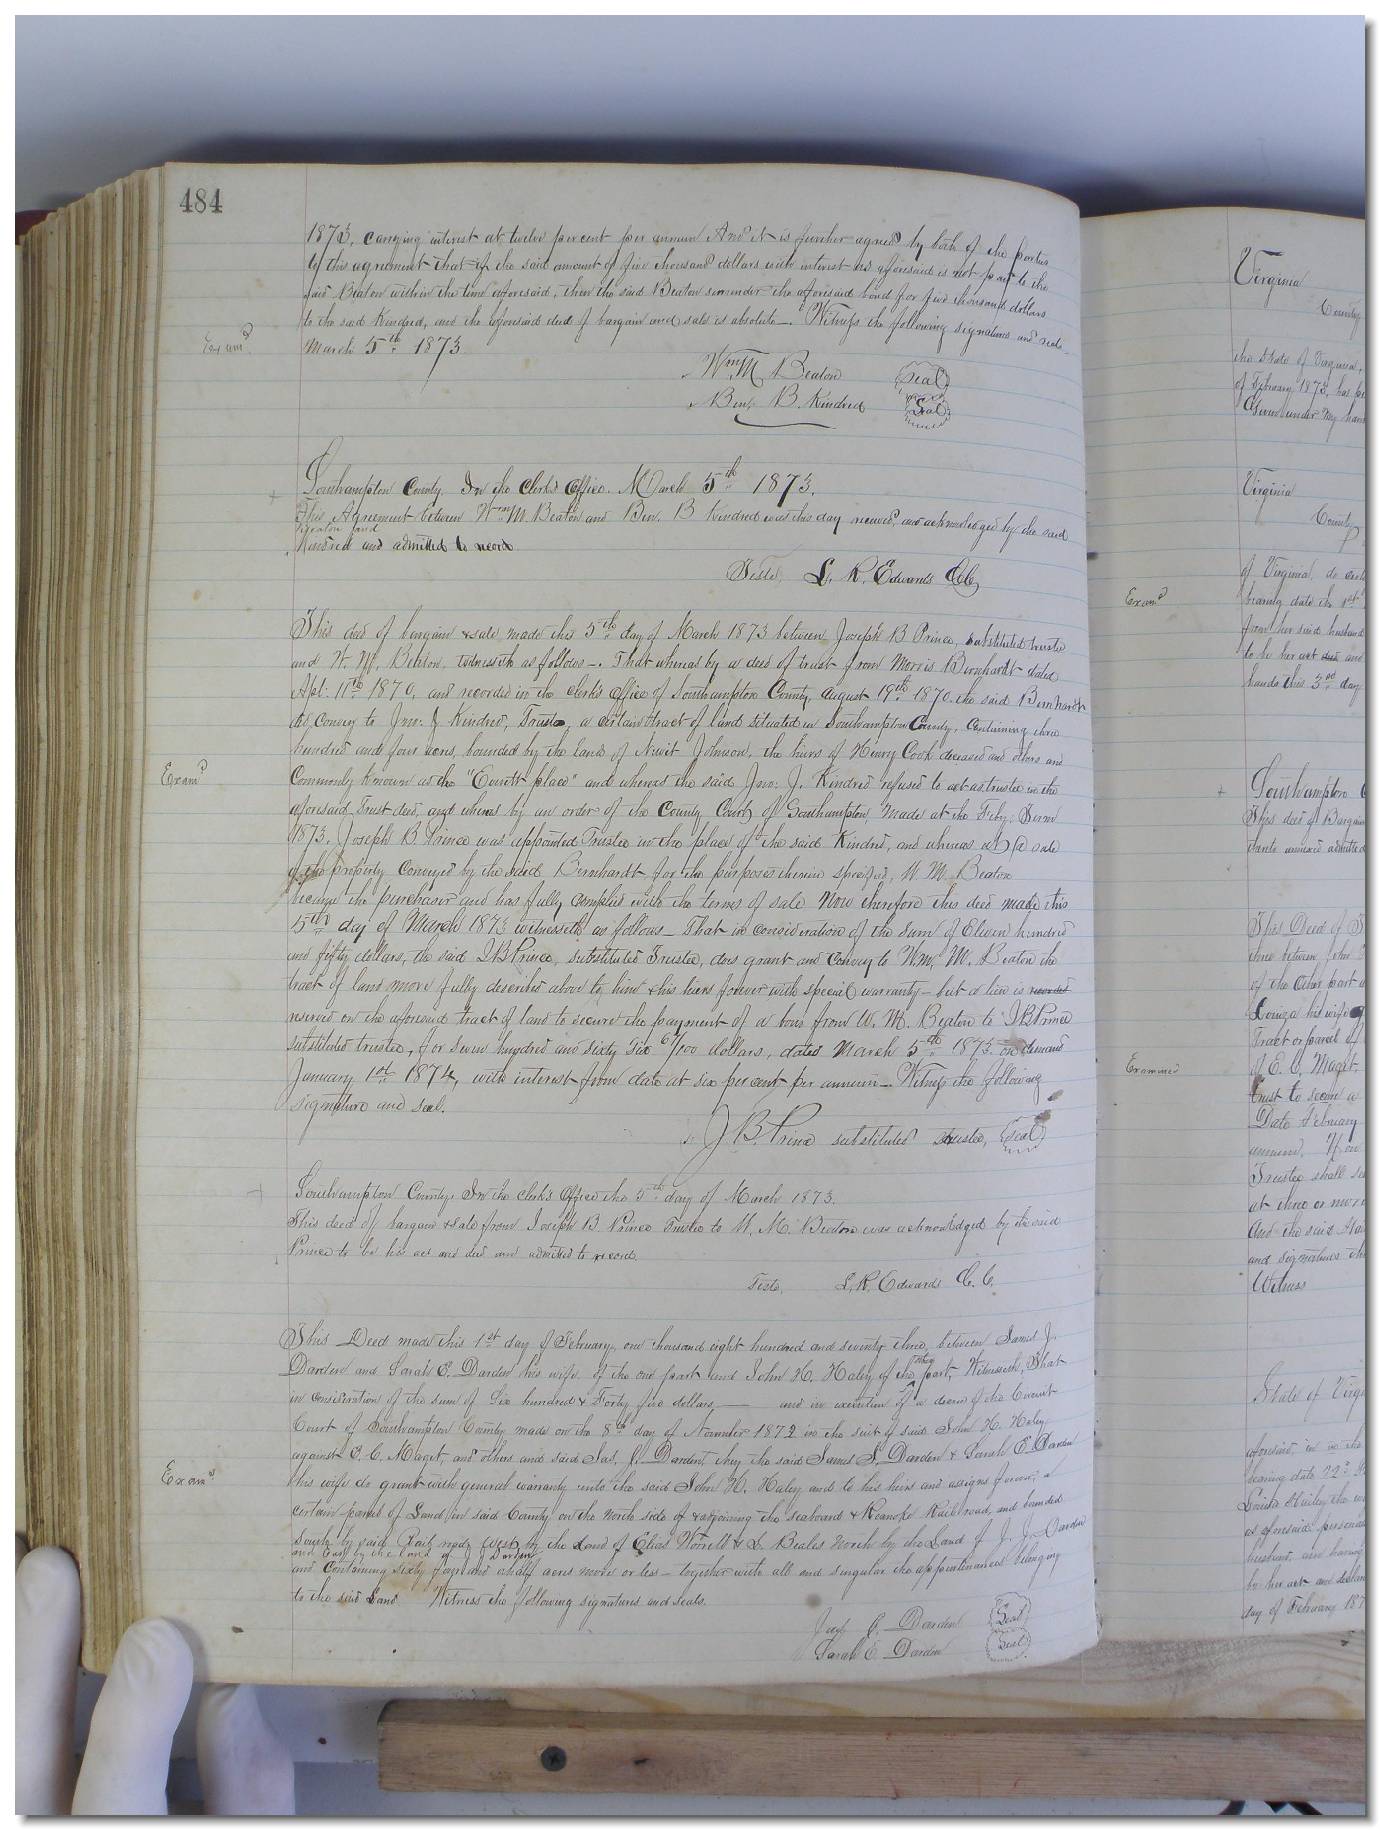 484
1873, carrying interest at twelve per cent per annum And it is further agreed by both of the parties
to this agreement that if the said amount of five thousand dollars with interest as aforesaid is not paid to the
said Beaton within the time aforesaid, then the said Beaton surrender the aforesaid bond for five thousand dollars
to the said Kindred, and the aforesaid deed of bargain and sale is absolute—. Witness the following signatures and seals.
Examd
March 5th 1873
Wm M Beaton Seal
Benj B. Kindred Seal
Southampton County. In the Clerks Office. March 5th 1873.
This Agreement between Wm M. Beaton and Ben. B Kindred was this day received, and acknowledged by the said
Beaton and
Kindred and admitted to record
Teste, L. R. Edwards C.C.
This deed of bargain & sale made this 5th day of March 1873 between Joseph B Prince, substituted trustee
and W. M. Beaton, witnesseth as follows—. That whereas by a deed of trust from Morris Bernhardt dated
Apl: 11th 1870, and recorded in the clerks office of Southampton County August 19th 1870. the said Bernhardt
did convey to Jno: J. Kindred, Trustee, a certain tract of land situated in Southampton County, Containing three
hundred and four acres, bounded by the lands of Newit Johnson, the heirs of Henry Cook deceased and others and
Examd
Commonly known as the "Everett place" and whereas the said Jno: J. Kindred refused to act as trustee in the
aforesaid Trust deed, and whereas by an order of the County Court of Southampton made at the Feby: Term
1873, Joseph B. Prince was appointed Trustee in the place of the said Kindred, and whereas at a sale
of the property conveyed by the said Bernhardt, for the purposes therein specified, W. M. Beaton
became the purchaser and has fully complied with the terms of sale Now therefore this deed made this
5th day of March 1873 witnesseth as follows— That in consideration of the sum of Eleven hundred
and fifty dollars, the said J. B Prince, substituted Trustee, does grant and convey to Wm. M. Beaton the
tract of land more fully described above to him & his heirs forever with special warranty— but a lien is recorded
reserved on the aforesaid tract of land to secure the payment of a bond from W. M. Beaton to J B Prince
substituted trustee, for seven hundred and sixty six 67/100 dollars, dated March 5th 1873 on demand
January 1st 1874, with interest from date at six per cent per annum—. Witness the following
signature and seal.
J. B. Prince substituted trustee, Seal
Southampton County. In the clerks Office the 5th day of March 1873.
This deed of bargain & sale from Joseph B. Prince Trustee to W. M. Beaton was acknowledged by the said
Prince to be his act and deed and admitted to record
Teste, L. R. Edwards C. C.
This Deed made this 1st day of February, one thousand eight hundred and seventy three, between James J.
Darden and Sarah E. Darden his wife, of the one part, and John H. Haley of the other part, Witnesseth, That
in consideration of the sum of Six hundred & Forty five dollars — and in execution of a decree of the Circuit
Court of Southampton County made on the 8th day of November 1872 in the suit of said John H. Haley
against E. C. Maget, and others and said Jas. J. Darden, they the said James J. Darden & Sarah E. Darden
Examd
his wife do grant with general warranty unto the said John H. Haley and to his heirs and assigns forever, a
certain parcel of Land, in said County on the north side of & adjoining the seaboard & Roanoke Rail road, and bounded
South by said Rail road, West by the Land of Elias Worrell & L. Beales North by the Land of J. J. Darden
and East by the land of J. J Darden
and Containing Sixty four and a half acres more or less— together with all and singular the appurtenances belonging
to the said Land Witness the following signatures and seals.
Jas J. Darden Seal
Sarah E. Darden Seal
Virginia
County
the State of Virginia,
of February 1873, has
Given under my hand
Virginia
County
of Virginia, do
Examd
bearing date the 1st
from her said husband
to be her act and
hands this 3rd day
Southampton
This deed of Bargain
annexed admitted
This Deed of
three between John
of the other part
Louiza his wife
Tract or parcel of
Examined
of E. C. Maget.
trust to secure
Date February
annum. If
Trustee shall
at three or more
And the said
and signatures
Witness
State of Virginia
aforesaid, in the
bearing date 22d
Louisa Haley the
as aforesaid, personally
husband, and having
be her act and
day of February 187